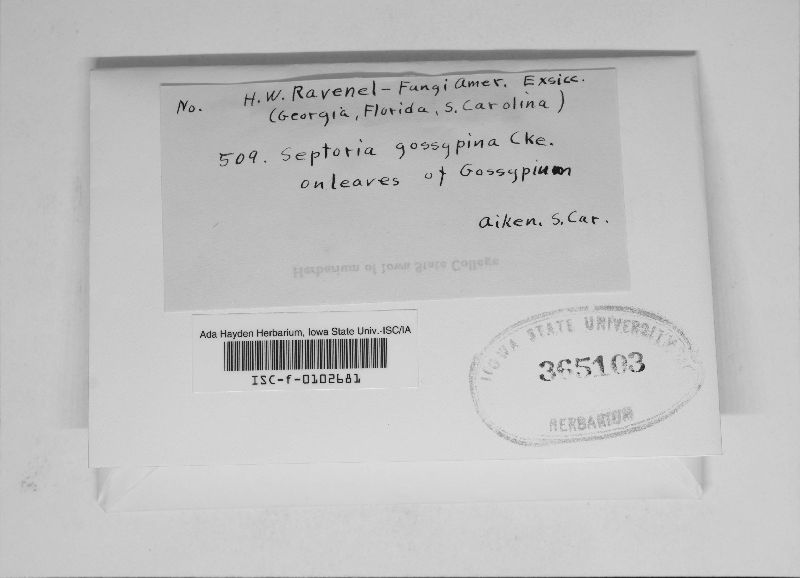 No. H. W. Ravenel - Fungi Amer. Exsicc.
(Georgia, Florida, S. Carolina)
509. Septoria gossypina Cke.
on leaves of Gossypium
Aiken. S. Car.
Herbarium of Iowa State College
Ada Hayden Herbarium, Iowa State Univ.-ISC/IA
ISC-f-0102681
IOWA STATE UNIVERSITY
365103
HERBARIUM